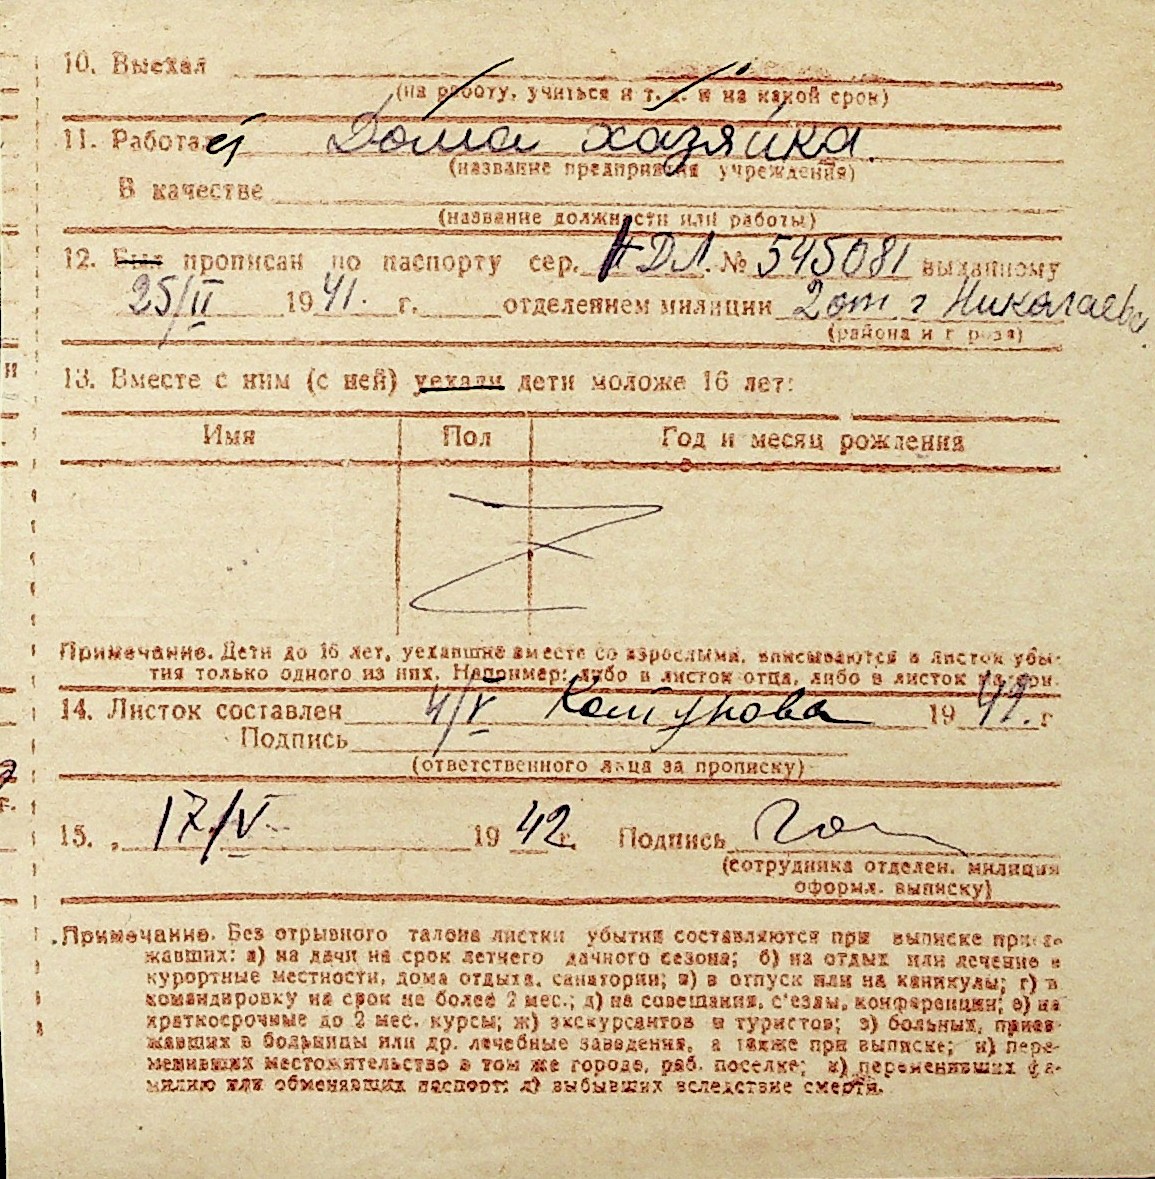 10. Выехал
(на работу, учиться и т. д. и на какой срок)
11. Работает Дома хазяйка.
(название предприятия учреждения)
В качестве
(название должности или работы)
12. Был прописан по паспорту сер. НДЛ. № 545081 выданному
25/II 1941. г. отделением милиции 2 от г Николаева
(района и города)
13. Вместе с ним (с ней) уехали дети моложе 16 лет:
Имя Пол Год и месяц рождения
Z
Примечание. Дети до 16 лет, уехавшие вместе со взрослыми, вписываются в листок убы-
тия только одного из них. Например: либо в листок отца, либо в листок матери.
14. Листок составлен 4/V 1942. г
Подпись
(ответственного лица за прописку)
15. „ 17/V 1942 г. Подпись
(сотрудника отделен. милиции
оформл. выписку)
Примечание. Без отрывного талона листки убытия составляются при выписке приез-
жавших: а) на дачи на срок летнего дачного сезона; б) на отдых или лечение в
курортные местности, дома отдыха, санатории; в) в отпуск или на каникулы; г) в
командировку на срок не более 2 мес.; д) на совещания, с'езды, конференции; е) на
краткосрочные до 2 мес. курсы; ж) экскурсантов и туристов; з) больных, приез-
жавших в больницы или др. лечебные заведения, а также при выписке; и) пере-
менивших местожительство в том же городе, раб. поселке; к) переменивших фа-
милию или обменявших паспорт; л) выбывших вследствие смерти.